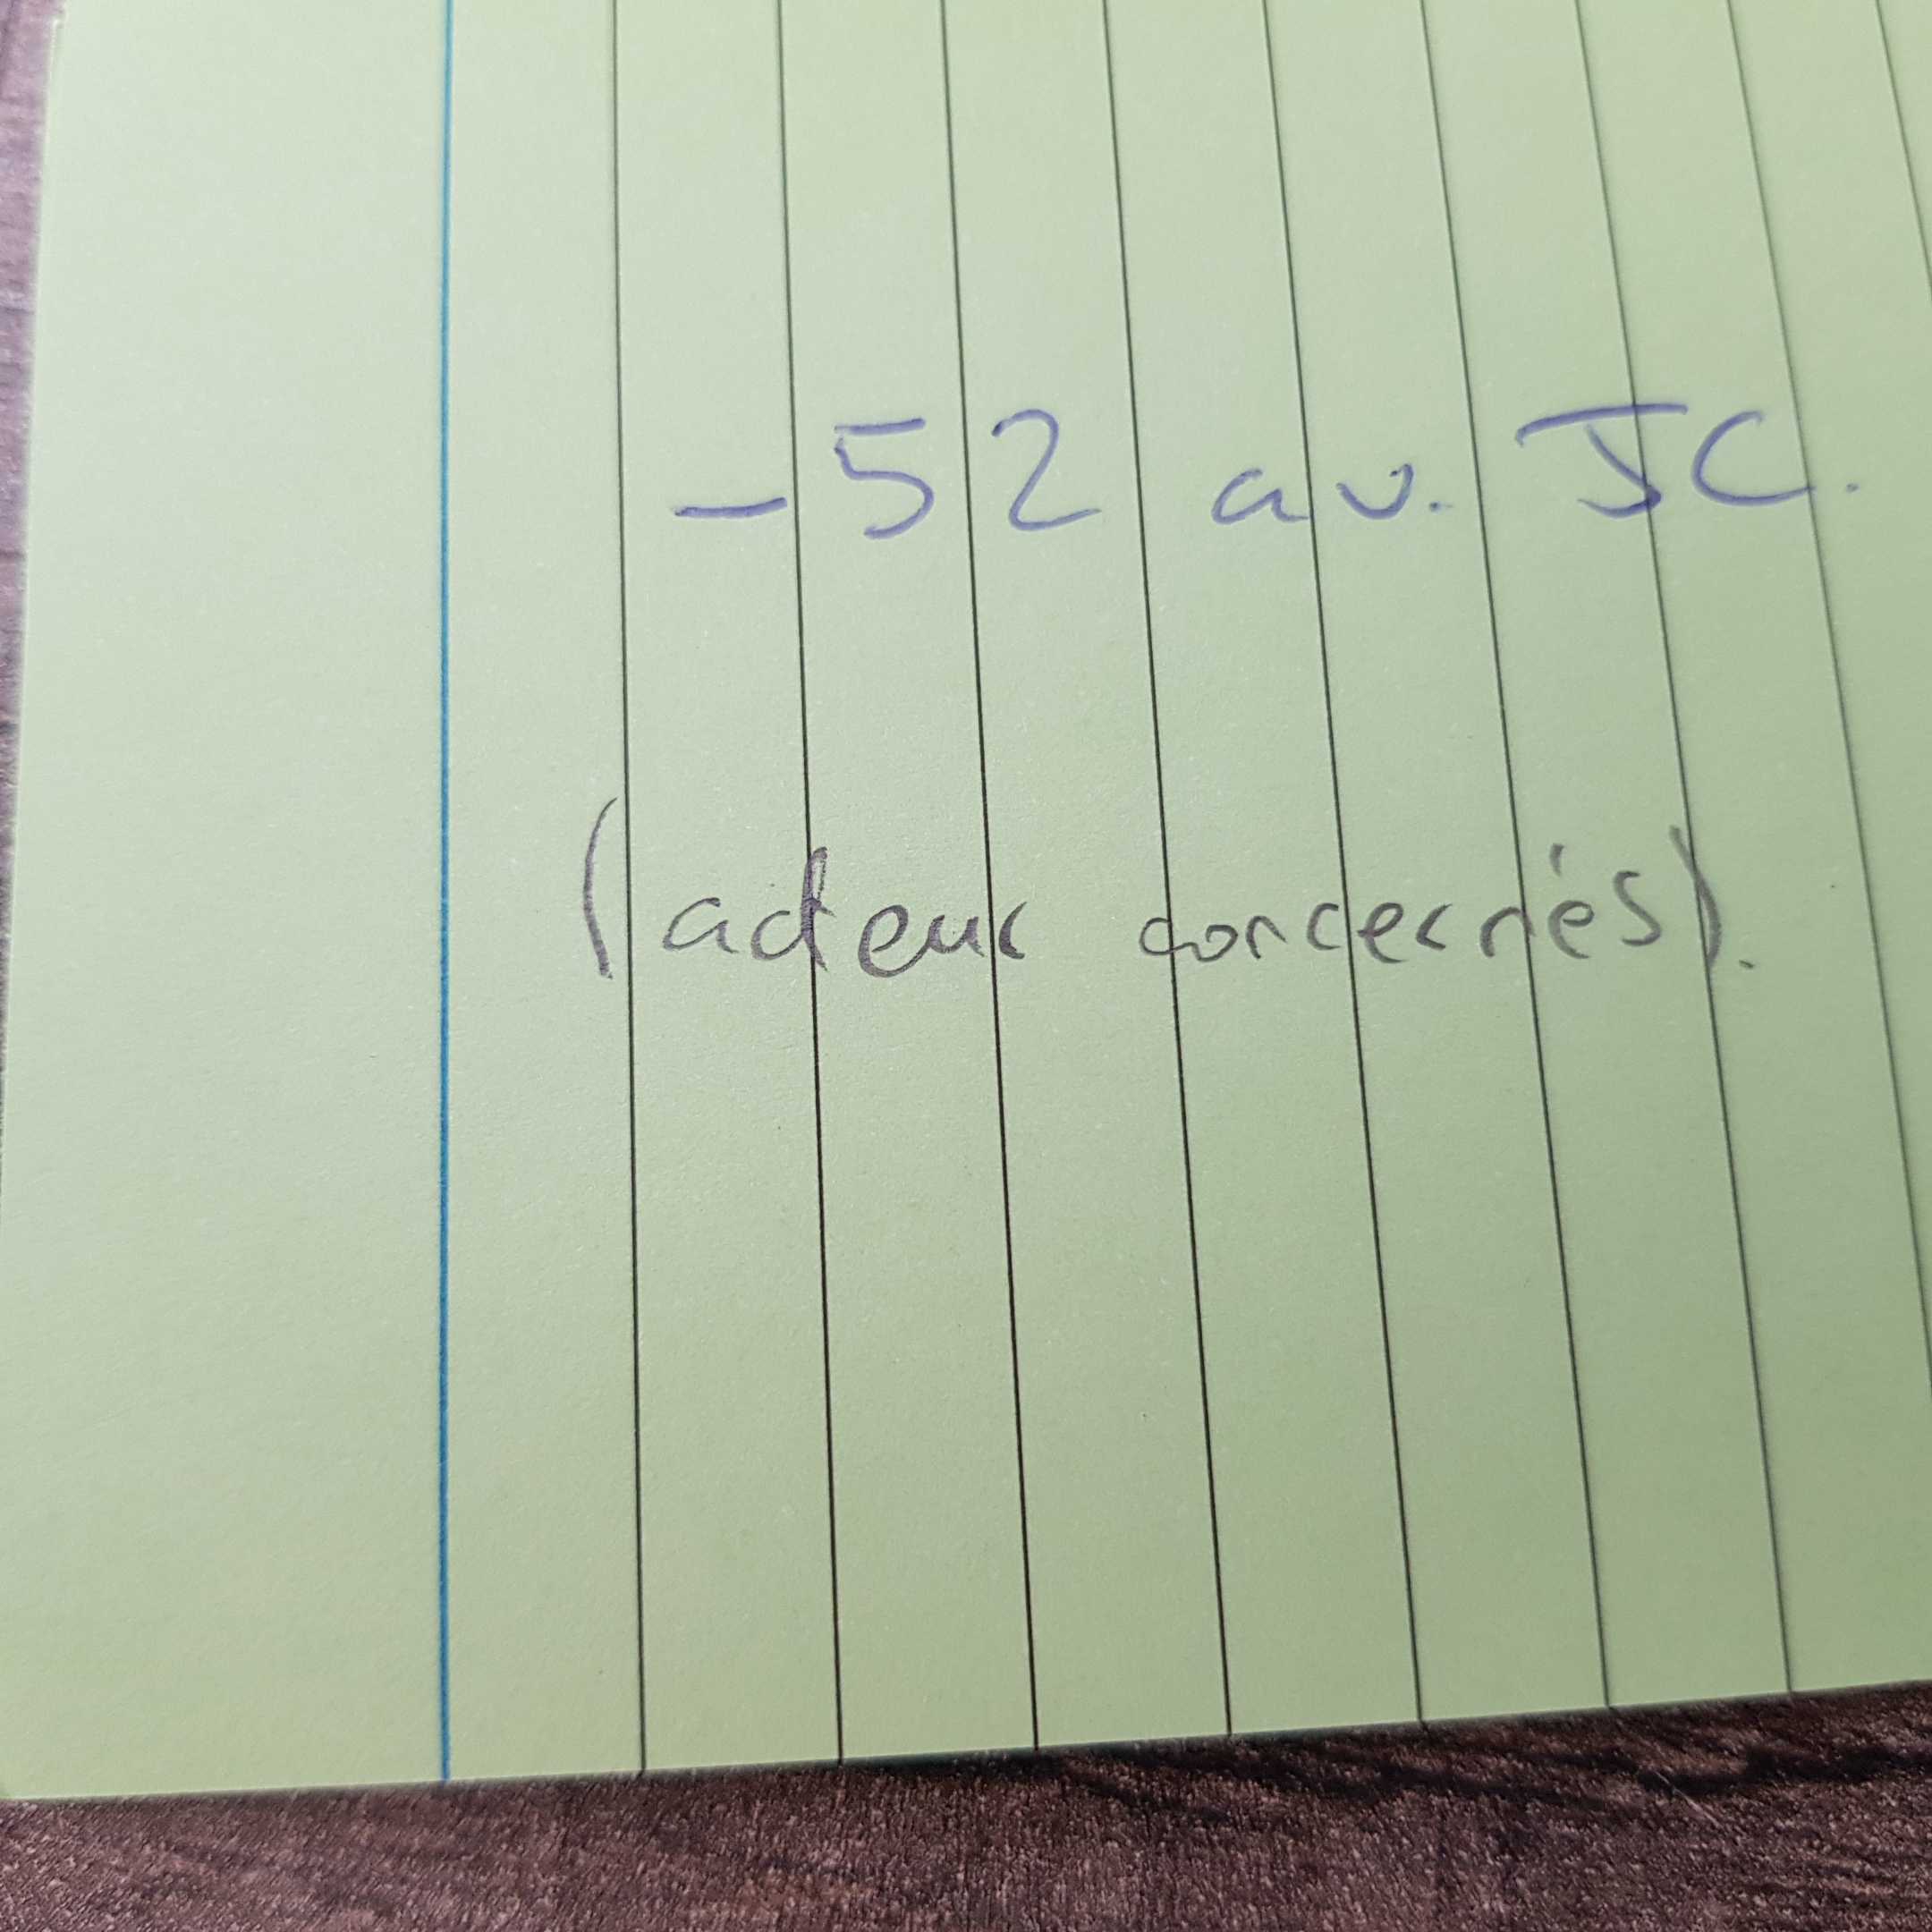 -52 av. JC.
(acteur concernés).